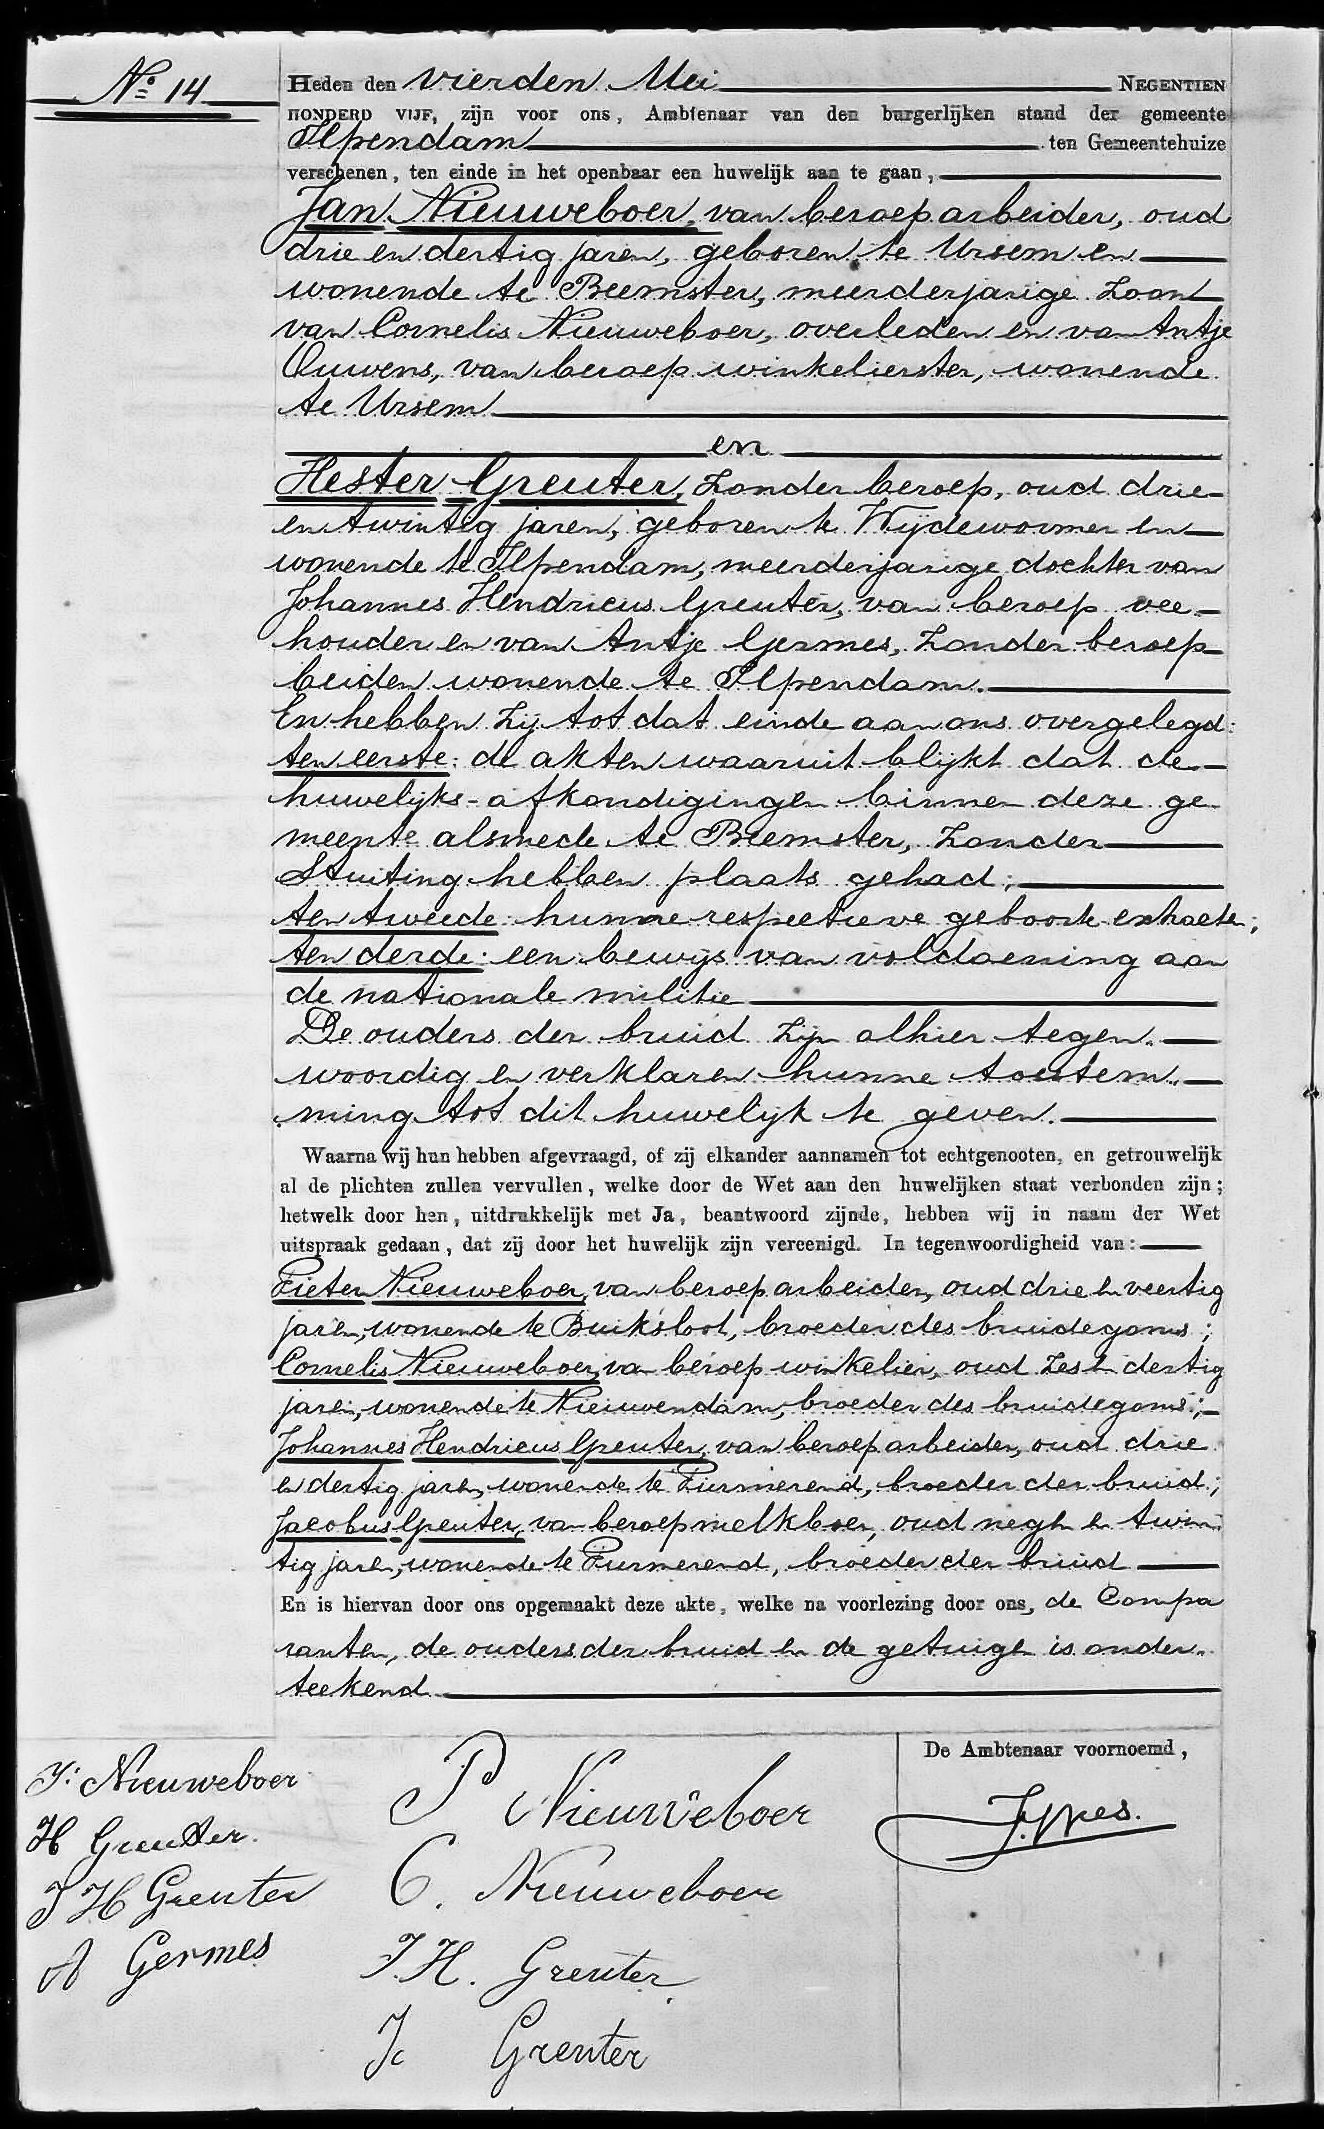 No 14
Heden den vierden Mei NEGENTIEN
HONDERD VIJF, zijn voor ons, Ambtenaar van den burgerlijken stand der gemeente
Ilpendam ten Gemeentehuize
verschenen, ten einde in het openbaar een huwelijk aan te gaan,
Jan Nieuweboer, van beroep arbeider, oud
drie en dertig jaren, geboren te Ursem en
wonende te Beemster, meerderjarige zoon
van Cornelis Nieuweboer, overleden en van Antje
Ouwens, van beroep winkelierster, wonende
te Ursem
en
Hester Greuter, zonder beroep, oud drie
en twintig jaren, geboren te Wijdewormer en
wonende te Ilpendam, meerderjarige dochter van
Johannes Hendricus Greuter, van beroep vee-
houder en van Antje Germes, zonder beroep
beiden wonende te Ilpendam.
En hebben zij tot dat einde aan ons overgelegd:
ten eerste: de akten waaruit blijkt dat de
huwelijks-afkondigingen binnen deze ge
meente alsmede te Beemster, zonder
stuiting hebben plaats gehad;
ten tweede: hunne respectieve geboorte extracten;
ten derde: een bewijs van voldoening aan
de nationale militie
De ouders der bruid zijn alhier tegen-
woordig en verklaren hunne toestem-
ming tot dit huwelijk te geven.
Waarna wij hun hebben afgevraagd, of zij elkander aannamen tot echtgenooten, en getrouwelijk
al de plichten zullen vervullen, welke door de Wet aan den huwelijken staat verbonden zijn;
hetwelk door hen, uitdrukkelijk met Ja, beantwoord zijnde, hebben wij in naam der Wet
uitspraak gedaan, dat zij door het huwelijk zijn vereenigd. In tegenwoordigheid van:
Pieter Nieuweboer, van beroep arbeider, oud drie en veertig
jaren, wonende te Buiksloot, broeder des bruidegoms;
Cornelis Nieuweboer, van beroep winkelier, oud zes en dertig
jaren, wonende te Nieuwendam, broeder des bruidegoms;
Johannes Hendricus Greuter, van beroep arbeider, oud drie
en dertig jaren, wonende te Purmerend, broeder der bruid;
Jacobus Greuter, van beroep melkboer, oud negen en twin
tig jaren, wonende te Purmerend, broeder der bruid
En is hiervan door ons opgemaakt deze akte, welke na voorlezing door ons, de Compa
ranten, de ouders der bruid en de getuigen is onder-
teekend.
De Ambtenaar voornoemd,
J: Nieuweboer
H Greuter.
J H Greuter
A Germes
P Nieuweboer
C. Nieuweboer
J. H. Greuter
Jc Greuter